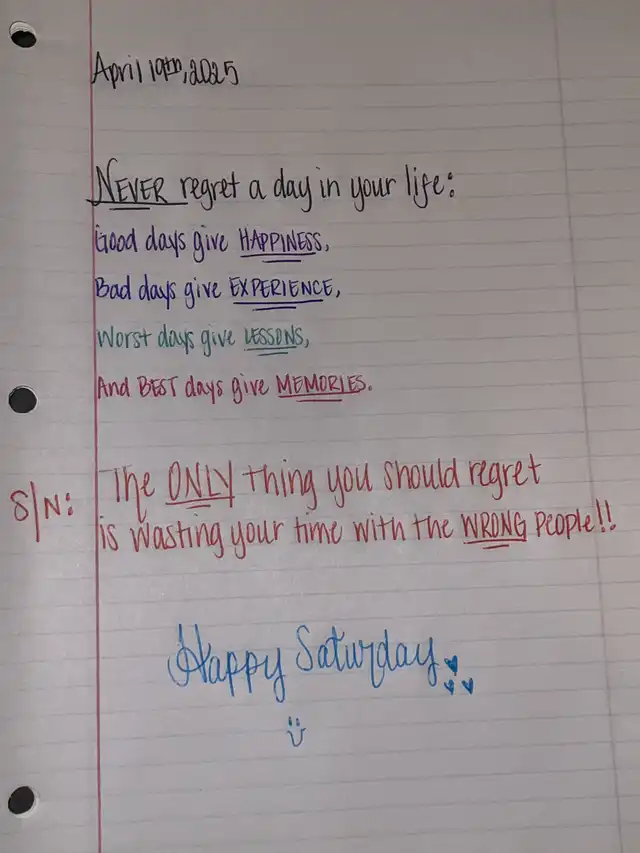 April 19th, 2025
NEVER regret a day in your life:
Good days give HAPPINESS,
Bad days give EXPERIENCE,
Worst days give LESSONS,
And BEST days give MEMORIES.
S/N: The ONLY thing you should regret
is wasting your time with the WRONG people!!
Happy Saturday